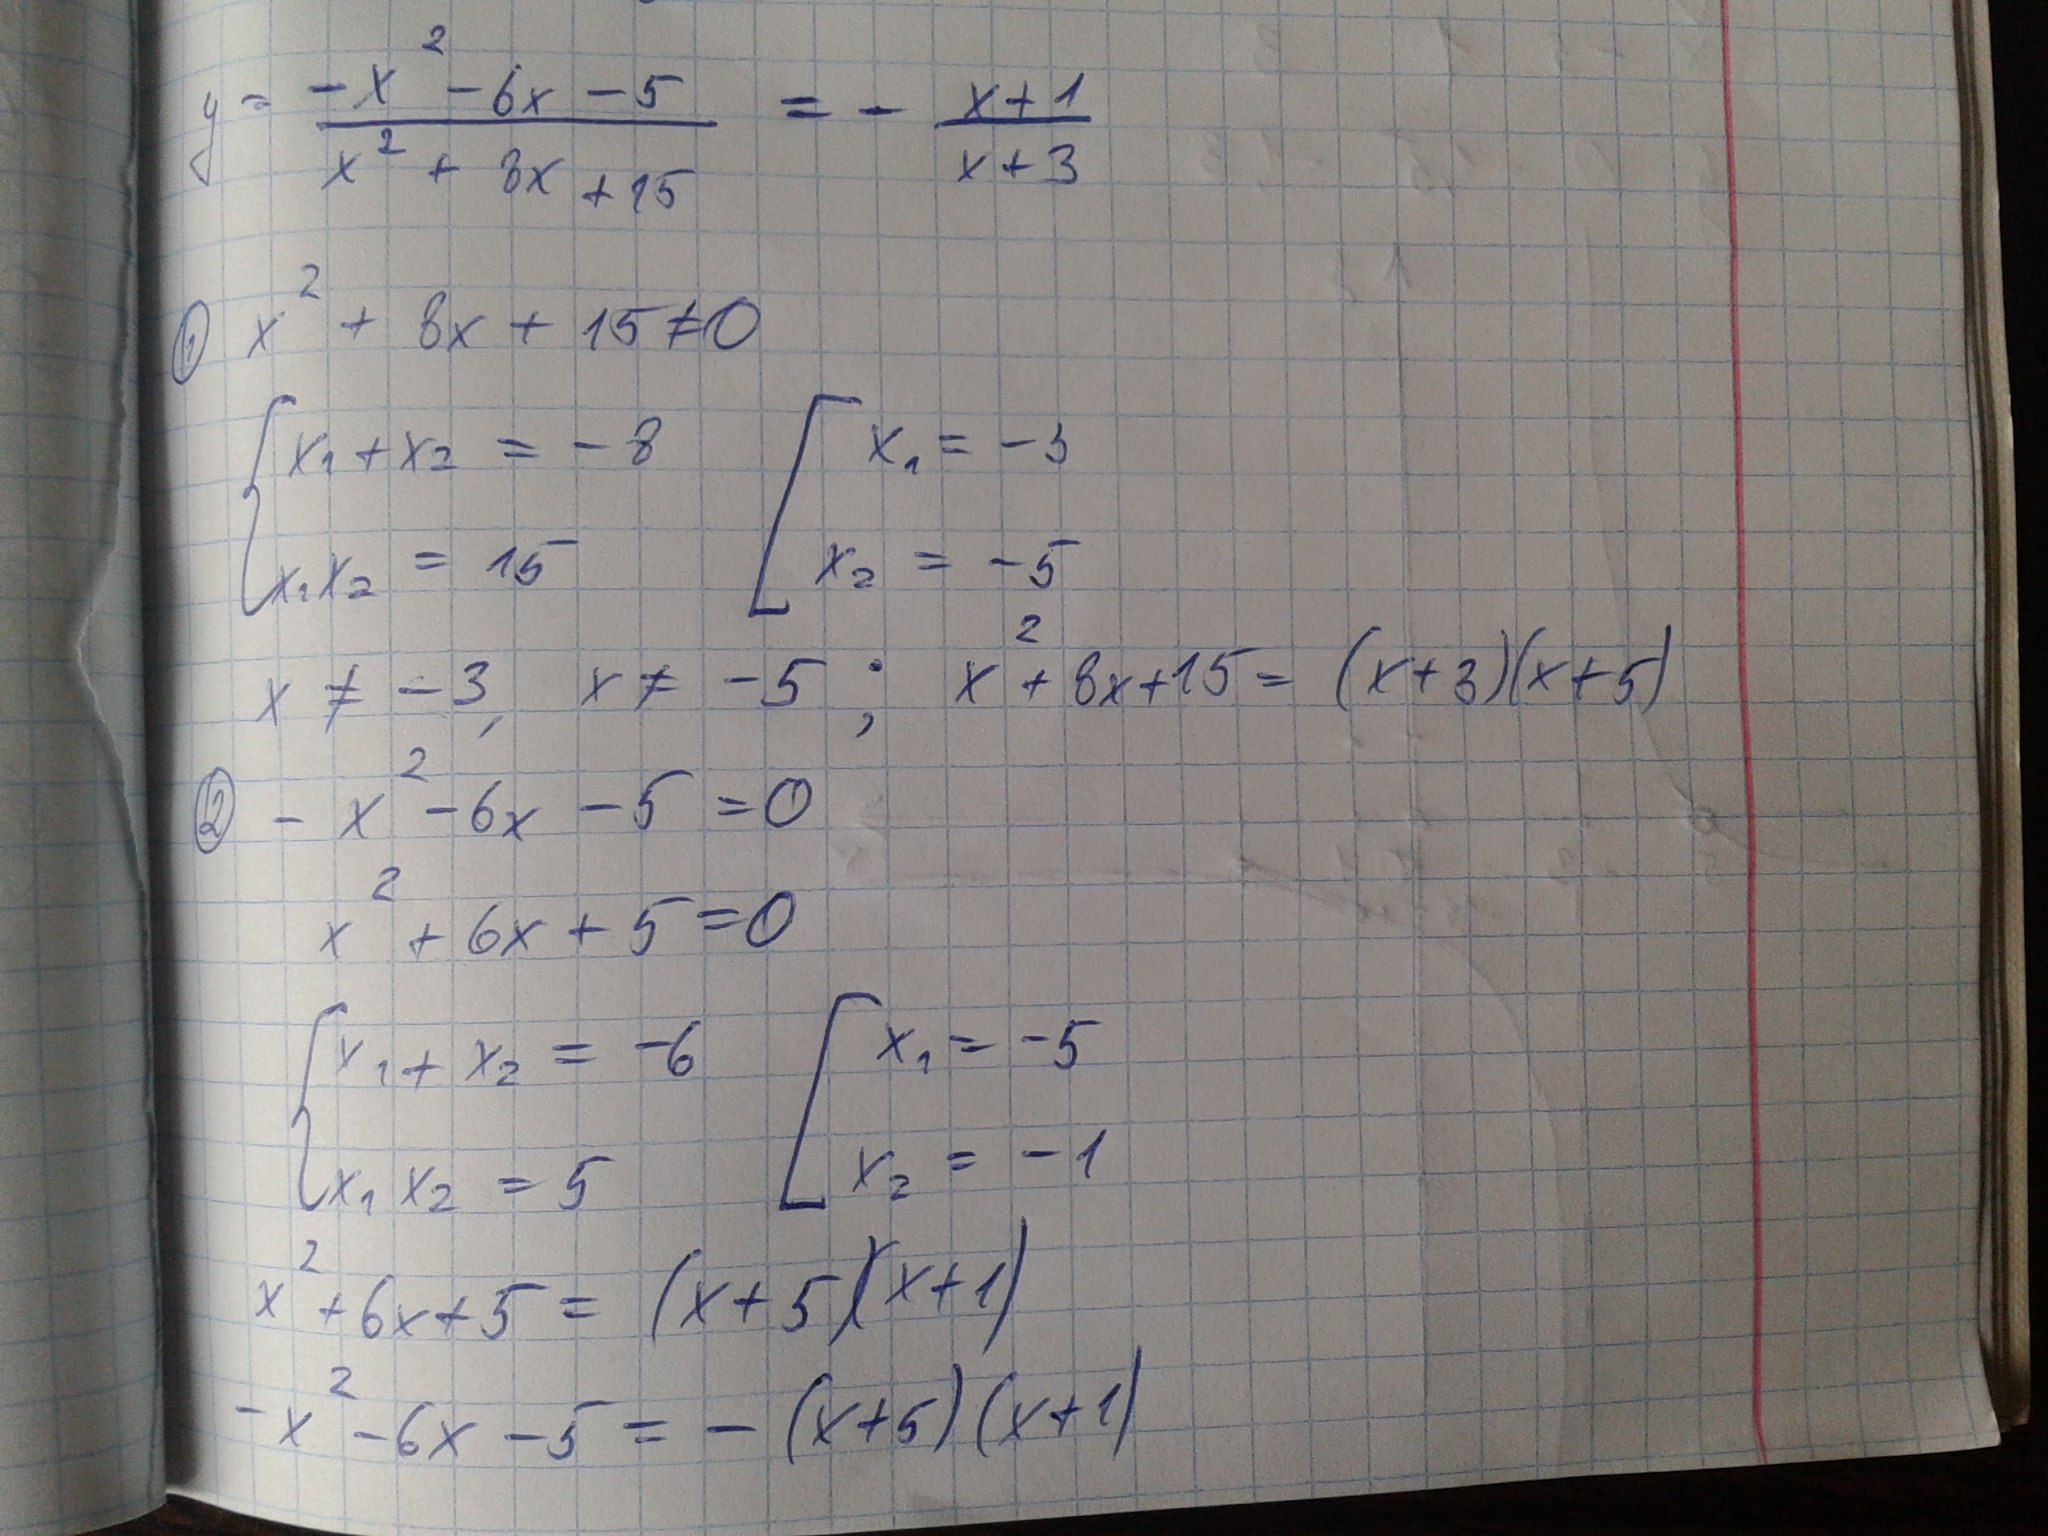 y = (-x² - 6x - 5)/(x² + 8x + 15) = - (x+1)/(x+3)
① x² + 8x + 15 ≠ 0
{ x₁ + x₂ = -8 [ x₁ = -3
x₁x₂ = 15 x₂ = -5
x ≠ -3, x ≠ -5 ; x² + 8x + 15 = (x+3)(x+5)
② - x² - 6x - 5 = 0
x² + 6x + 5 = 0
{ x₁ + x₂ = -6 [ x₁ = -5
x₁ x₂ = 5 x₂ = -1
x² + 6x + 5 = (x+5)(x+1)
-x² - 6x - 5 = - (x+5)(x+1)